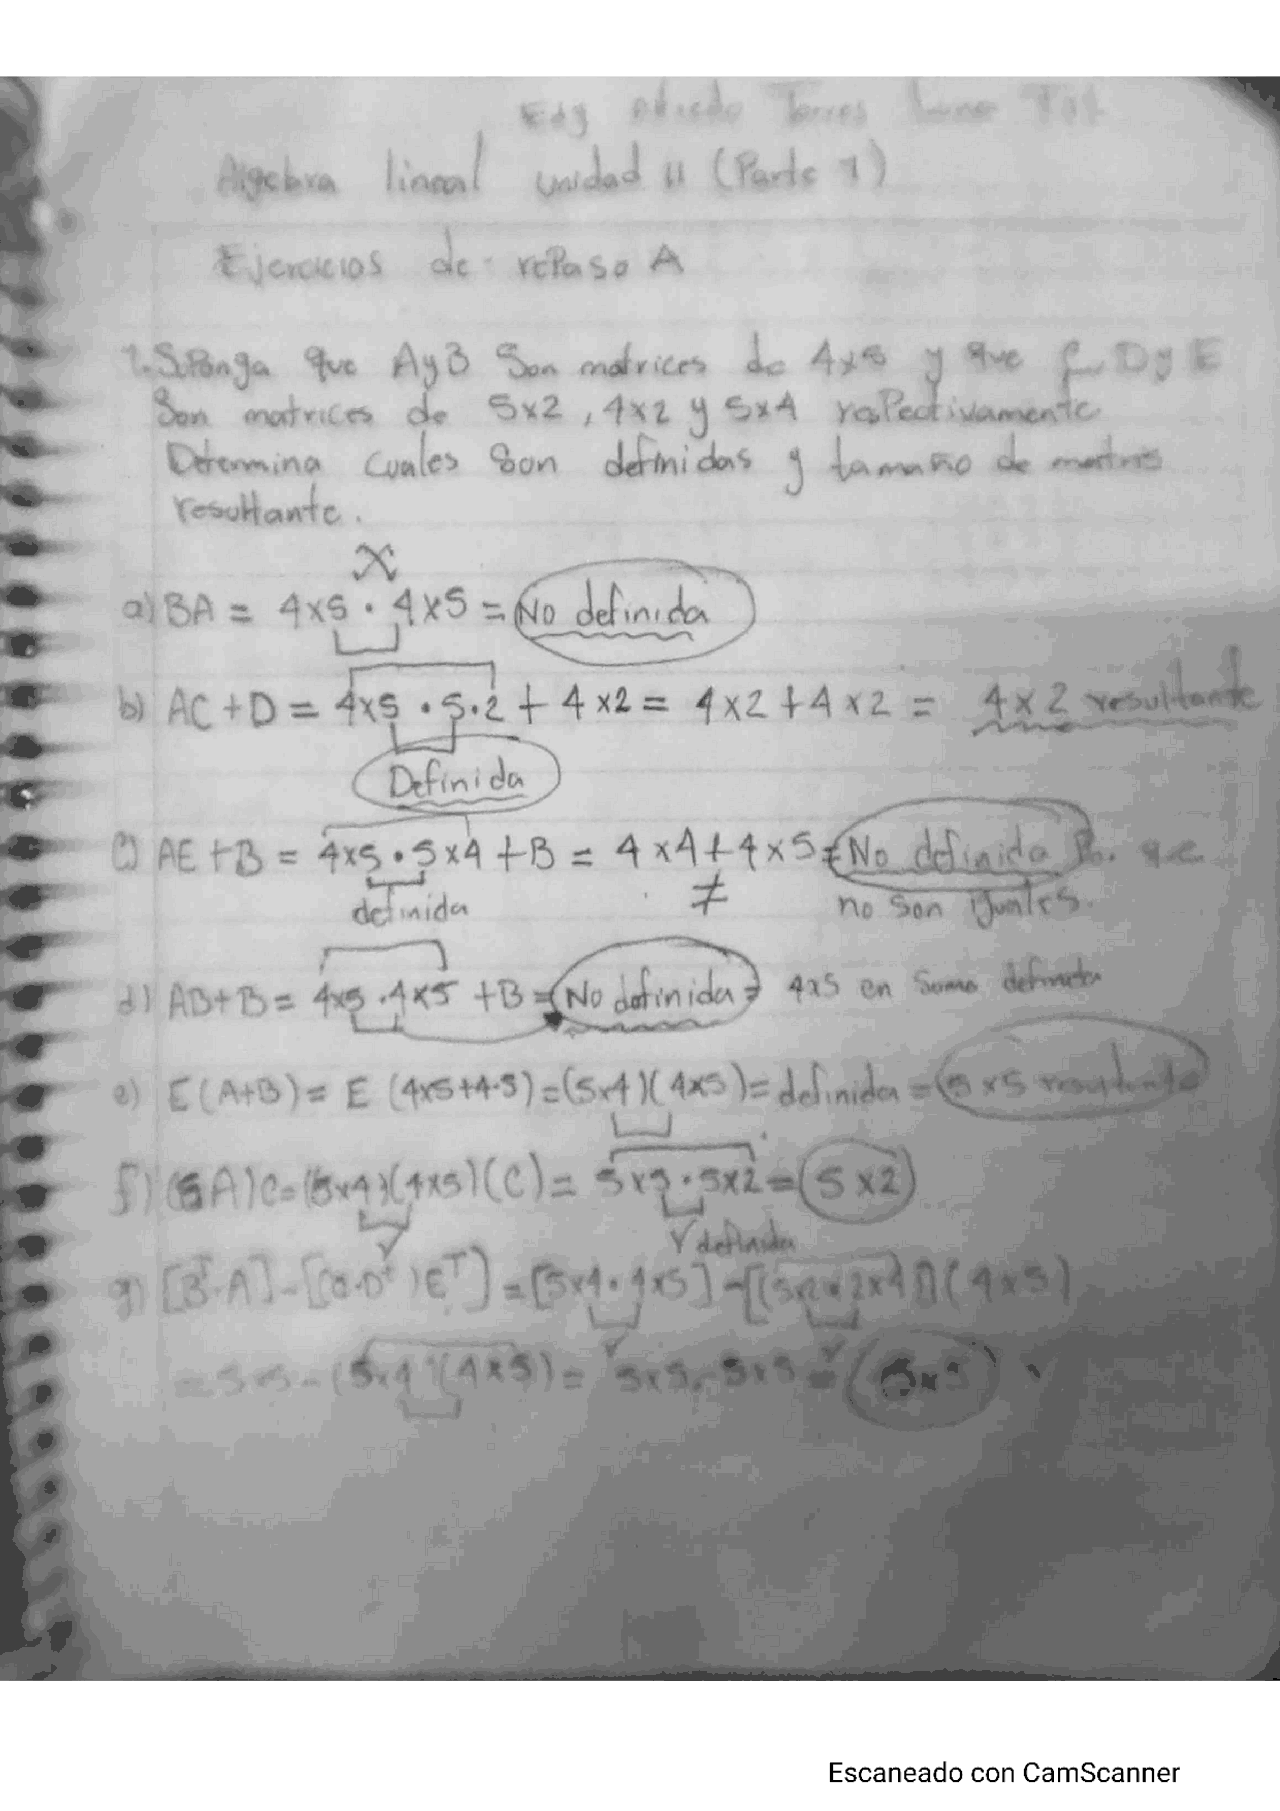 Edy Torres
Algebra lineal unidad II (Parte 1)
Ejercicios de rePaso A
1. SuPonga que A y B Son matrices de 4x5 y que C D y E
Son matrices de 5x2 , 4x2 y 5x4 resPectivamente
Determina cuales Son definidas y tamaño de matris
resultante.
X
a) BA = 4x5 · 4x5 = No definida
b) AC + D = 4x5 · 5·2 + 4x2 = 4x2 + 4x2 = 4x2 resultante
Definida
c) AE + B = 4x5 · 5x4 + B = 4x4 + 4x5 = No definida Por que
definida ≠ no Son iguales.
d) AB + B = 4x5 · 4x5 + B = No definida = 4x5 en Suma definida
e) E(A+B) = E (4x5+4·5) = (5x4)(4x5) = definida = 5x5 resultante
f) (EA)C = (5x4)(4x5)(C) = 5x5 · 5x2 = 5x2
√ √ definida
g) [Bᵀ·A] - [(C·Dᵀ)Eᵀ] = [5x4 · 4x5] - [(5x2 · 2x4)](4x5)
= 5·5 - (5x4)(4x5) = 5x5 - 5x5 = (5x5)
Escaneado con CamScanner